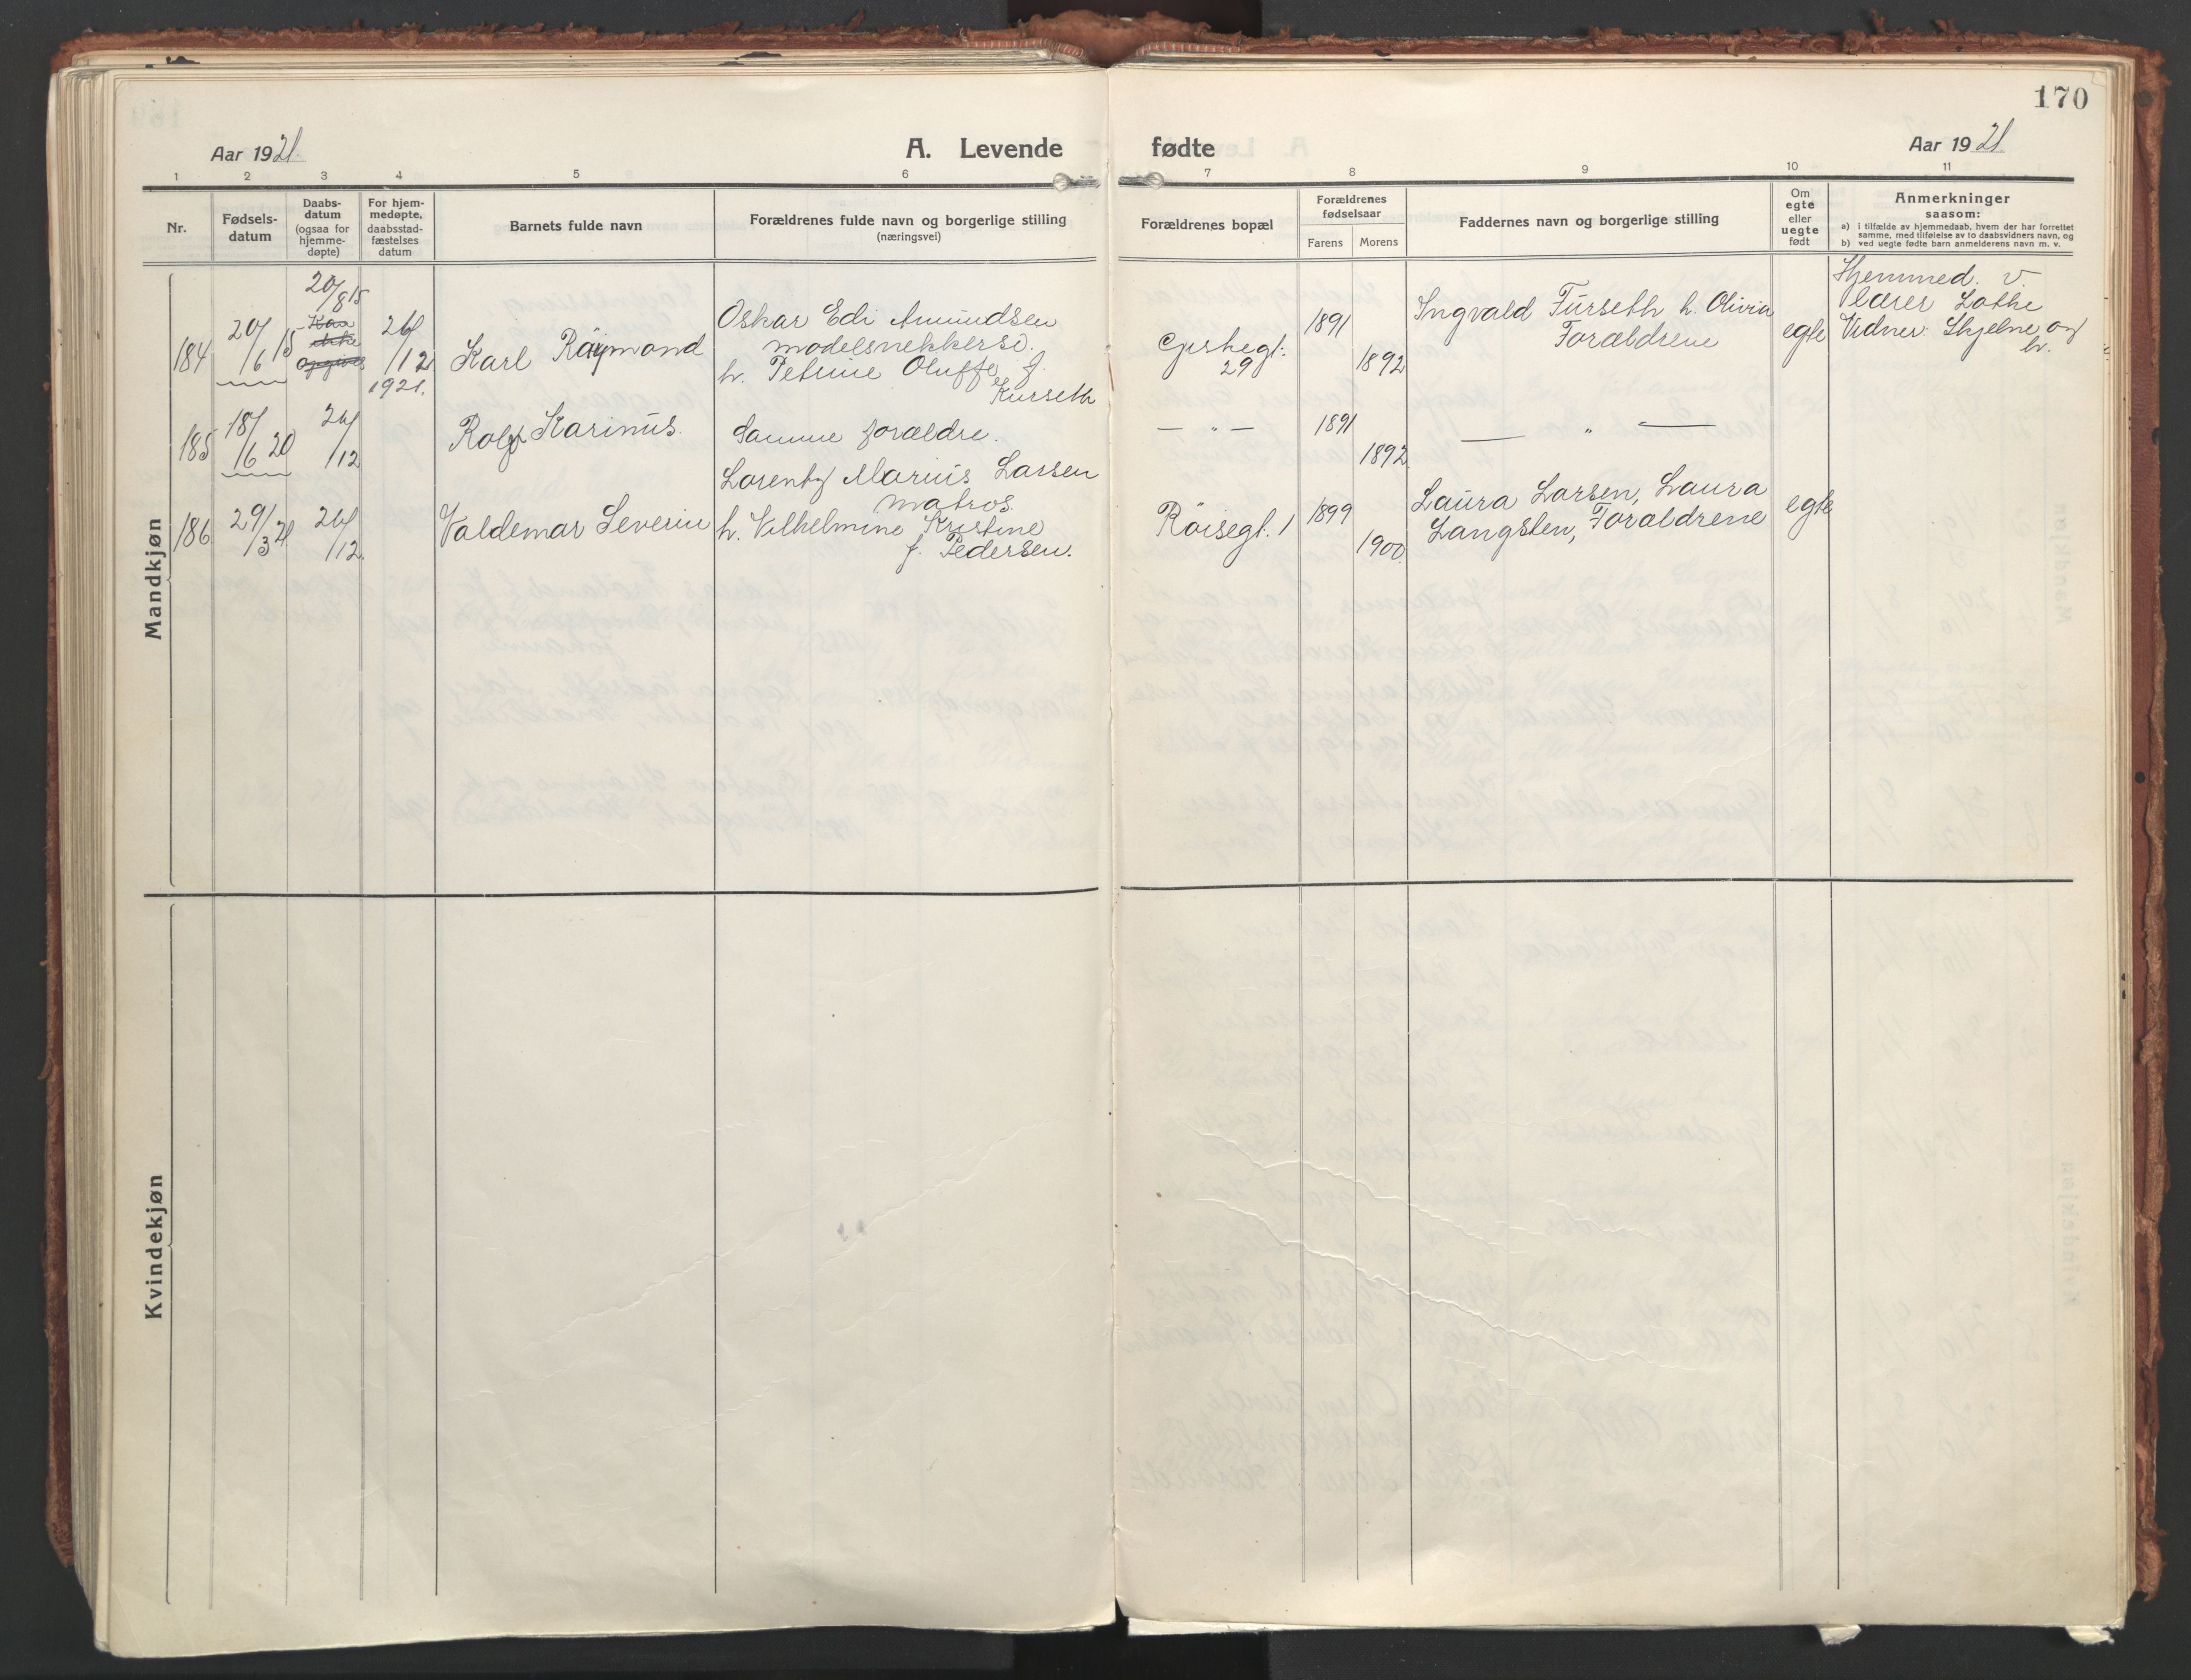 170
Aar 1921.
A. Levende fødte
Aar 1921
1 2 3 4 5 6 7 8 9 10 11
Nr.
Fødsels-
datum
Daabs-
datum
(ogsaa for
hjemme-
døpte)
For hjem-
medøpte,
daabsstad-
fæstelses
datum
Barnets fulde navn
Forældrenes fulde navn og borgerlige stilling
(næringsvei)
Forældrenes bopæl
Forældrenes
fødselsaar
Farens Morens
Faddernes navn og borgerlige stilling
Om
egte
eller
uegte
født
Anmerkninger
saasom:
a) i tilfælde av hjemmedaab, hvem der har forrettet
samme, med tilføielse av to daabsvidners navn, og
b) ved uegte fødte barn anmelderens navn m. v.
Mandkjøn
184
20/6 15
20/8 15
Kan
ikke
opgives
26/12
1921.
Karl Raymond
Oskar Edi Amundsen
modelsnekkersv.
h. Petrine Oluffe f.
Furseth
29
1891
1892
Ingvald Furseth h. Olivia
Forældrene
egte
Hjemmed. v.
lærer Lothe
Vidner: Skjelne og
h.
185
18/6 20
26/12
Rolf Karinus.
Samme forældre.
— „ —
1891
1892
— „ —
186
29/3 21
26/12.
Valdemar Severin
Lorentz Marius Larsen
matros.
h. Vilhelmine Kristine
f. Pedersen.
Röisegt. 1
1899
1900.
Laura Larsen, Laura
Langsten, Forældrene
egte
Kvindekjøn